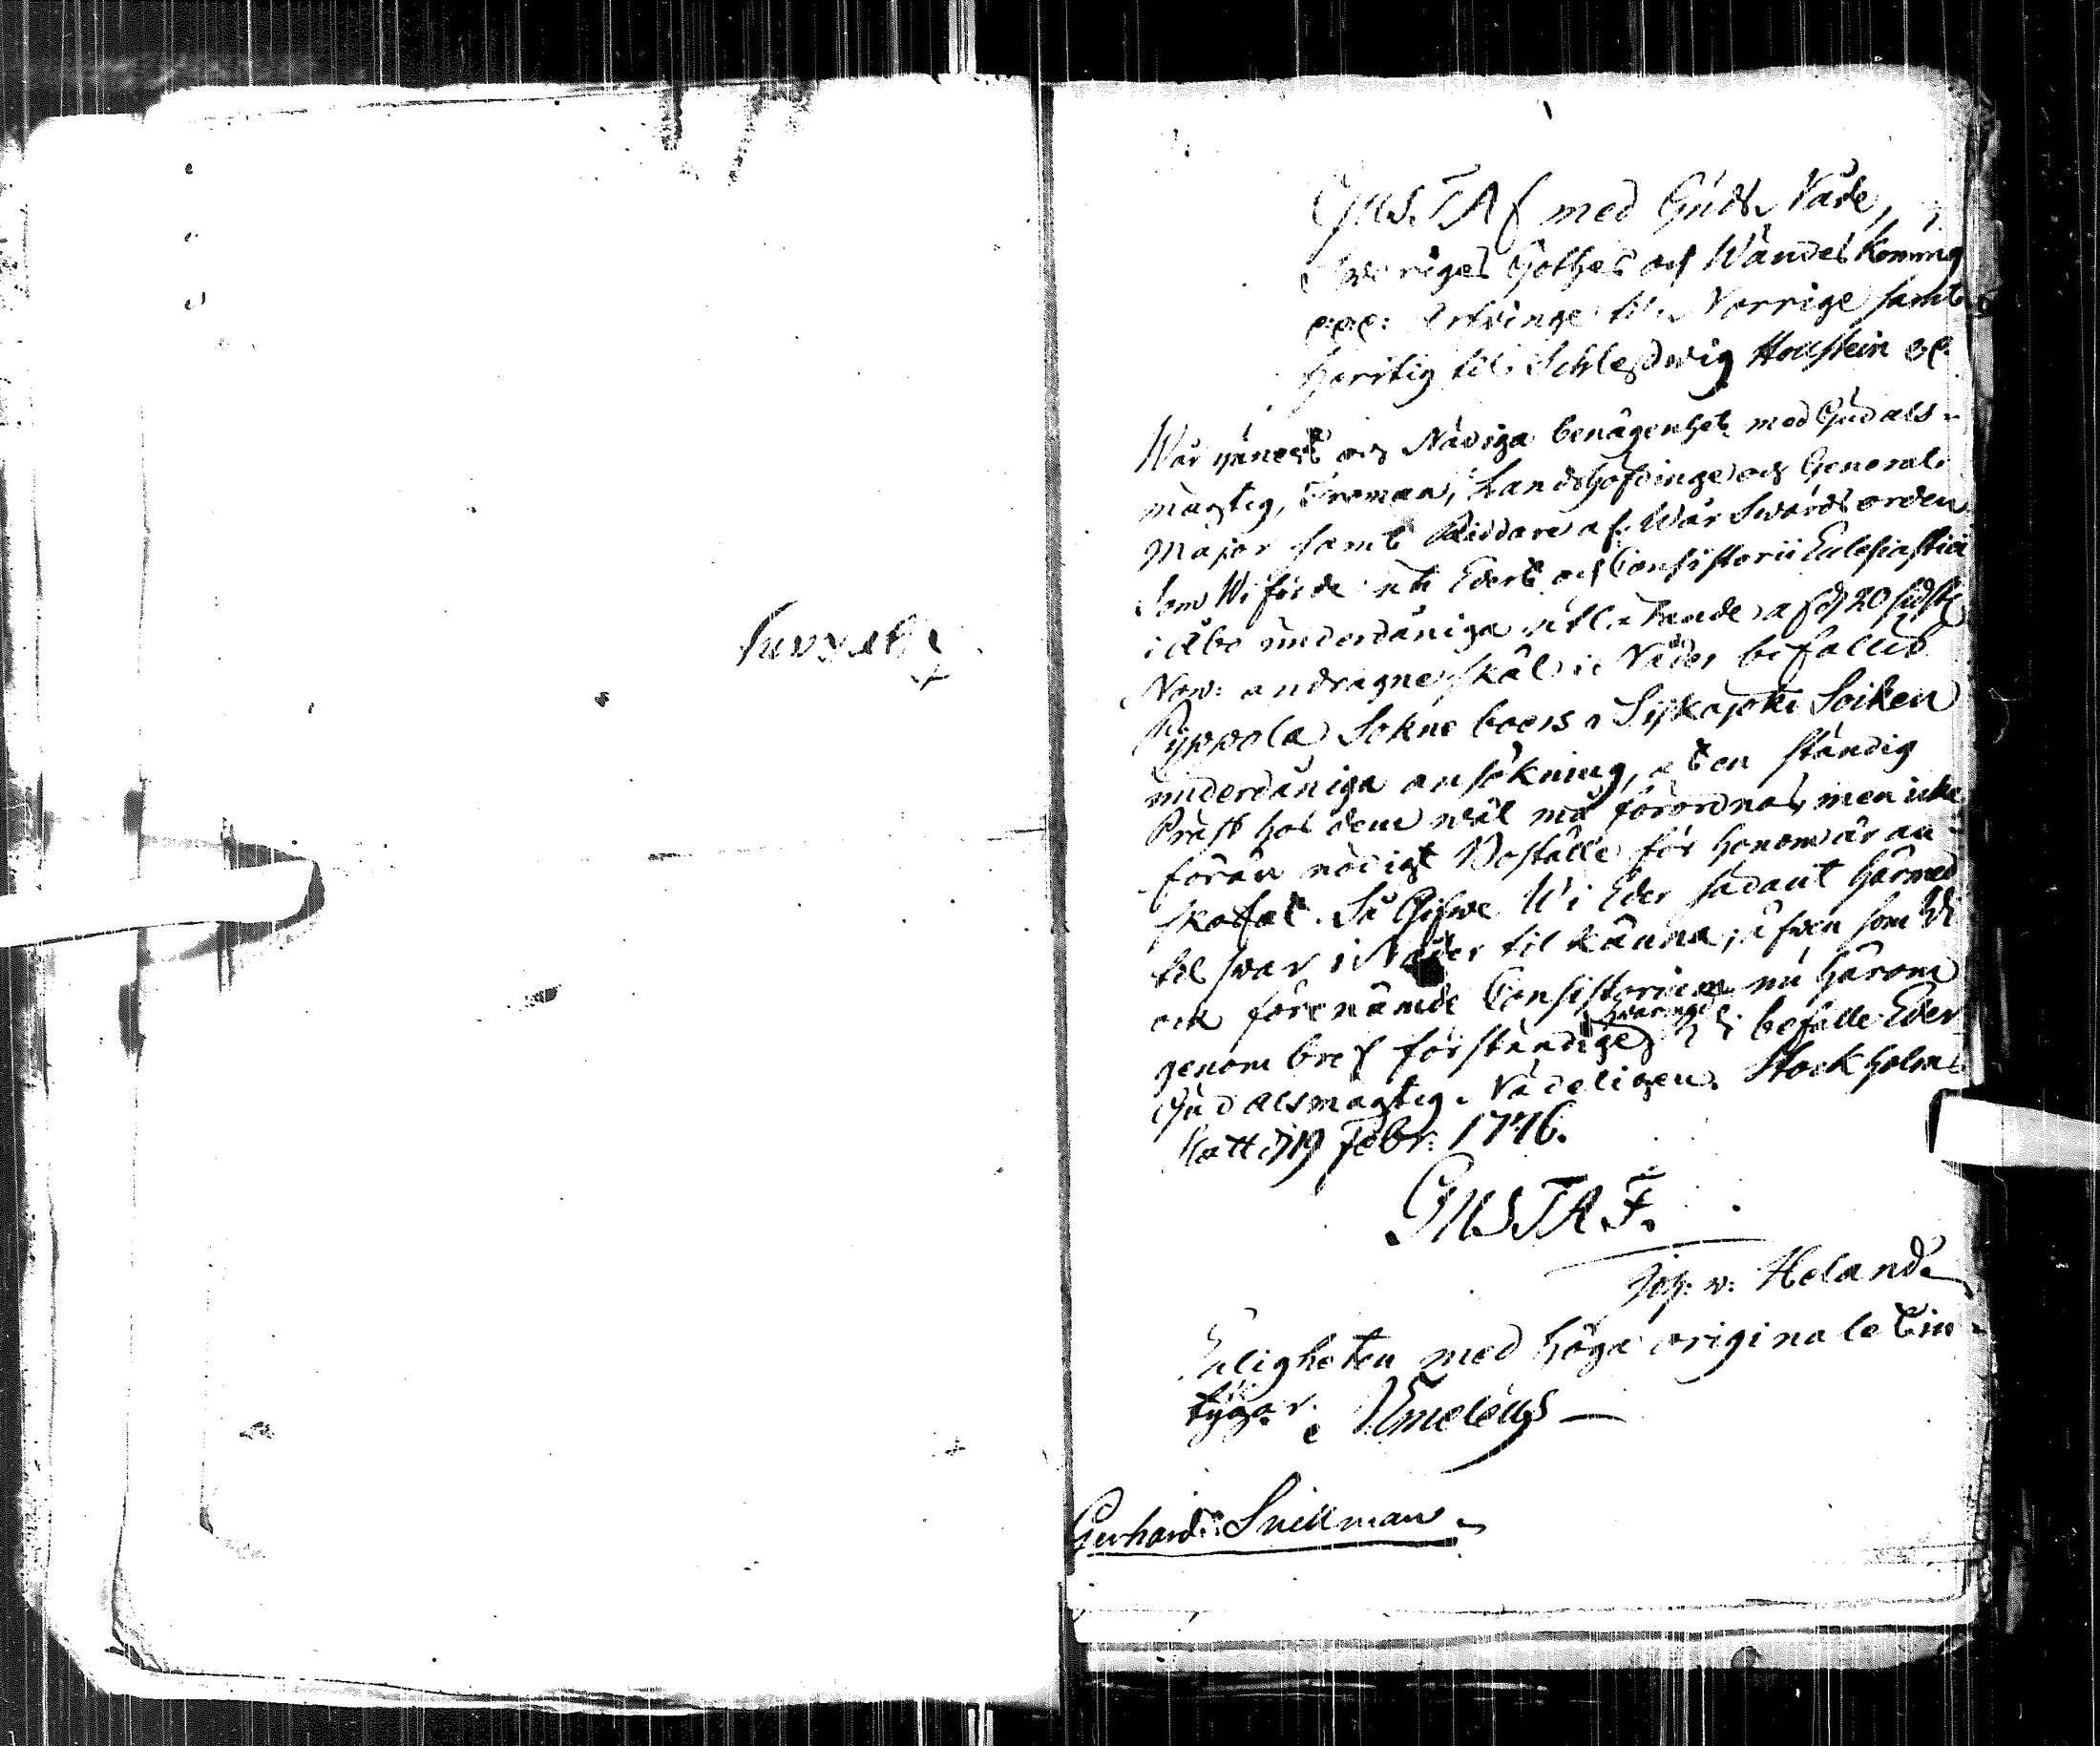 GUSTAf med Guds Nåde,
Sweriges Göthes och Wändes Konung
&c&c: Arfvinge til Norrige samt
Hertig til Schleswig Hollstein &c.
Wår ynnest och Nådiga benägenhet med Gud als-
magtig, Troman, Landshöfdinge och General
Major samt Riddare af Wår Swärds orden
Som Wi för de uti Edert och Consistorii Eclesiastici
i Åbo underdåniga utlåtande af d 20 sidstl
Nov: andragne skäl i Nåder befallt
Pyppola Sokne boers i Sijkajoki Soiken
underdåniga ansökning, at en ständig
Präst hos dem wäl må förordnas, men icke
förän nödigt Boställe för honom är an-
skaffat. Så Gifwe Wi Eder sådant härmed
til swar i Nåder til känna, äfwen som Wi
ock förenämde Consistorium nu härom
genom bref förständiget Wi befalle Eder
Gud alsmagtig Nådeligen. Stockholms
Slott d 19 Febr: 1776.
GUSTAF.
Joh: v: Heland
Enligheten med höga originalet in-
tygar. Umeleus
Gerhard: Snellman